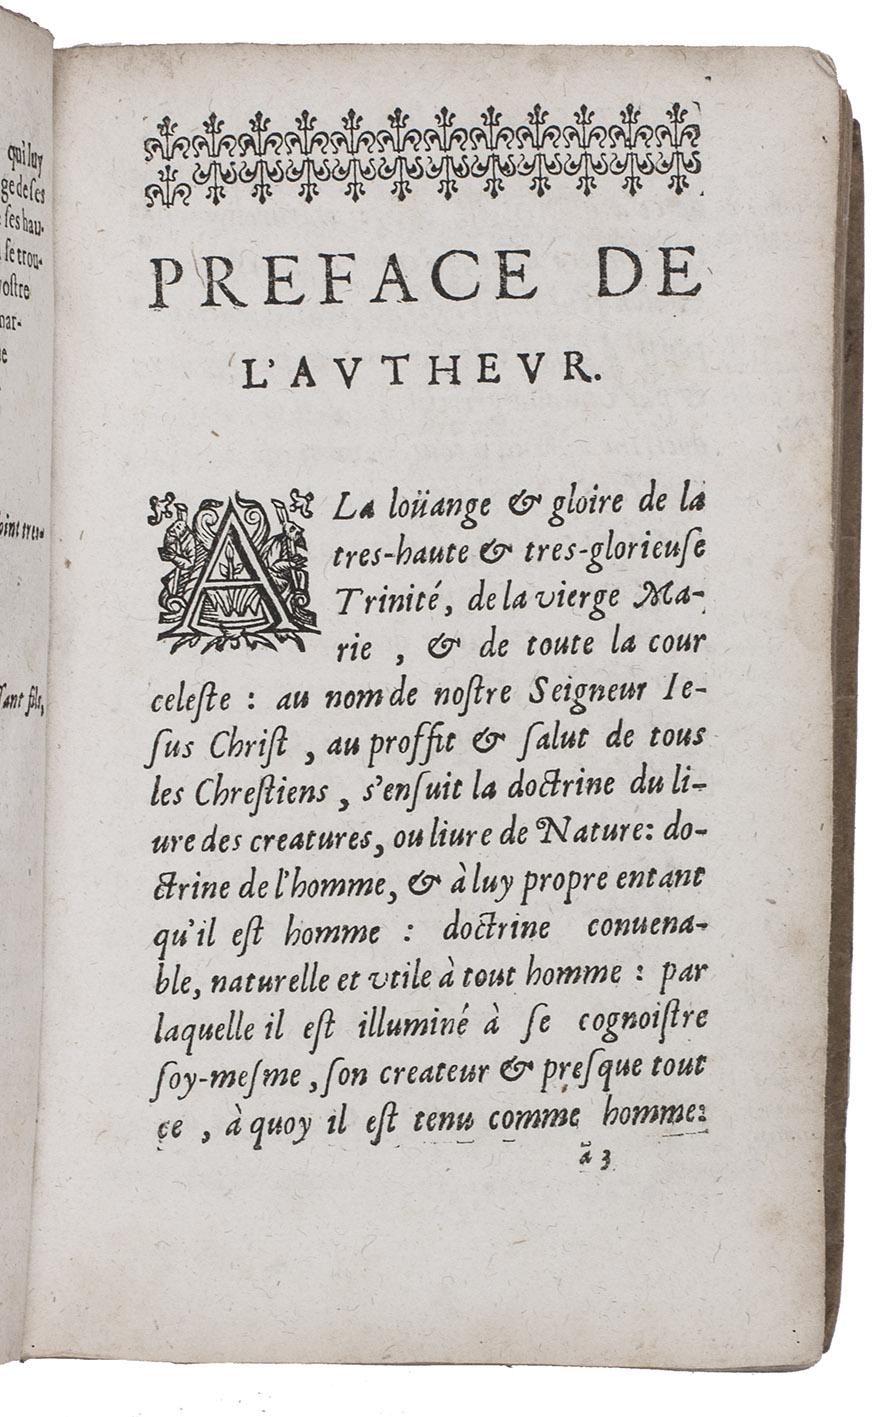 qui luy
ge de ſes
ſes hau-
ſe trou-
voſtre
nar-
PREFACE DE
L'AVTHEVR.
A La loüange & gloire de la
tres-haute & tres-glorieuſe
Trinité, de la vierge Ma-
rie , & de toute la cour
celeſte : au nom de noſtre Seigneur Ie-
ſus Chriſt , au proffit & ſalut de tous
les Chreſtiens , s'enſuit la doctrine du li-
ure des creatures, ou liure de Nature: do-
ctrine de l'homme, & à luy propre entant
qu'il eſt homme : doctrine conuena-
ble, naturelle et vtile à tout homme : par
laquelle il eſt illuminé à ſe cognoiſtre
ſoy-meſme , ſon createur & preſque tout
ce , à quoy il eſt tenu comme homme:
ã 3